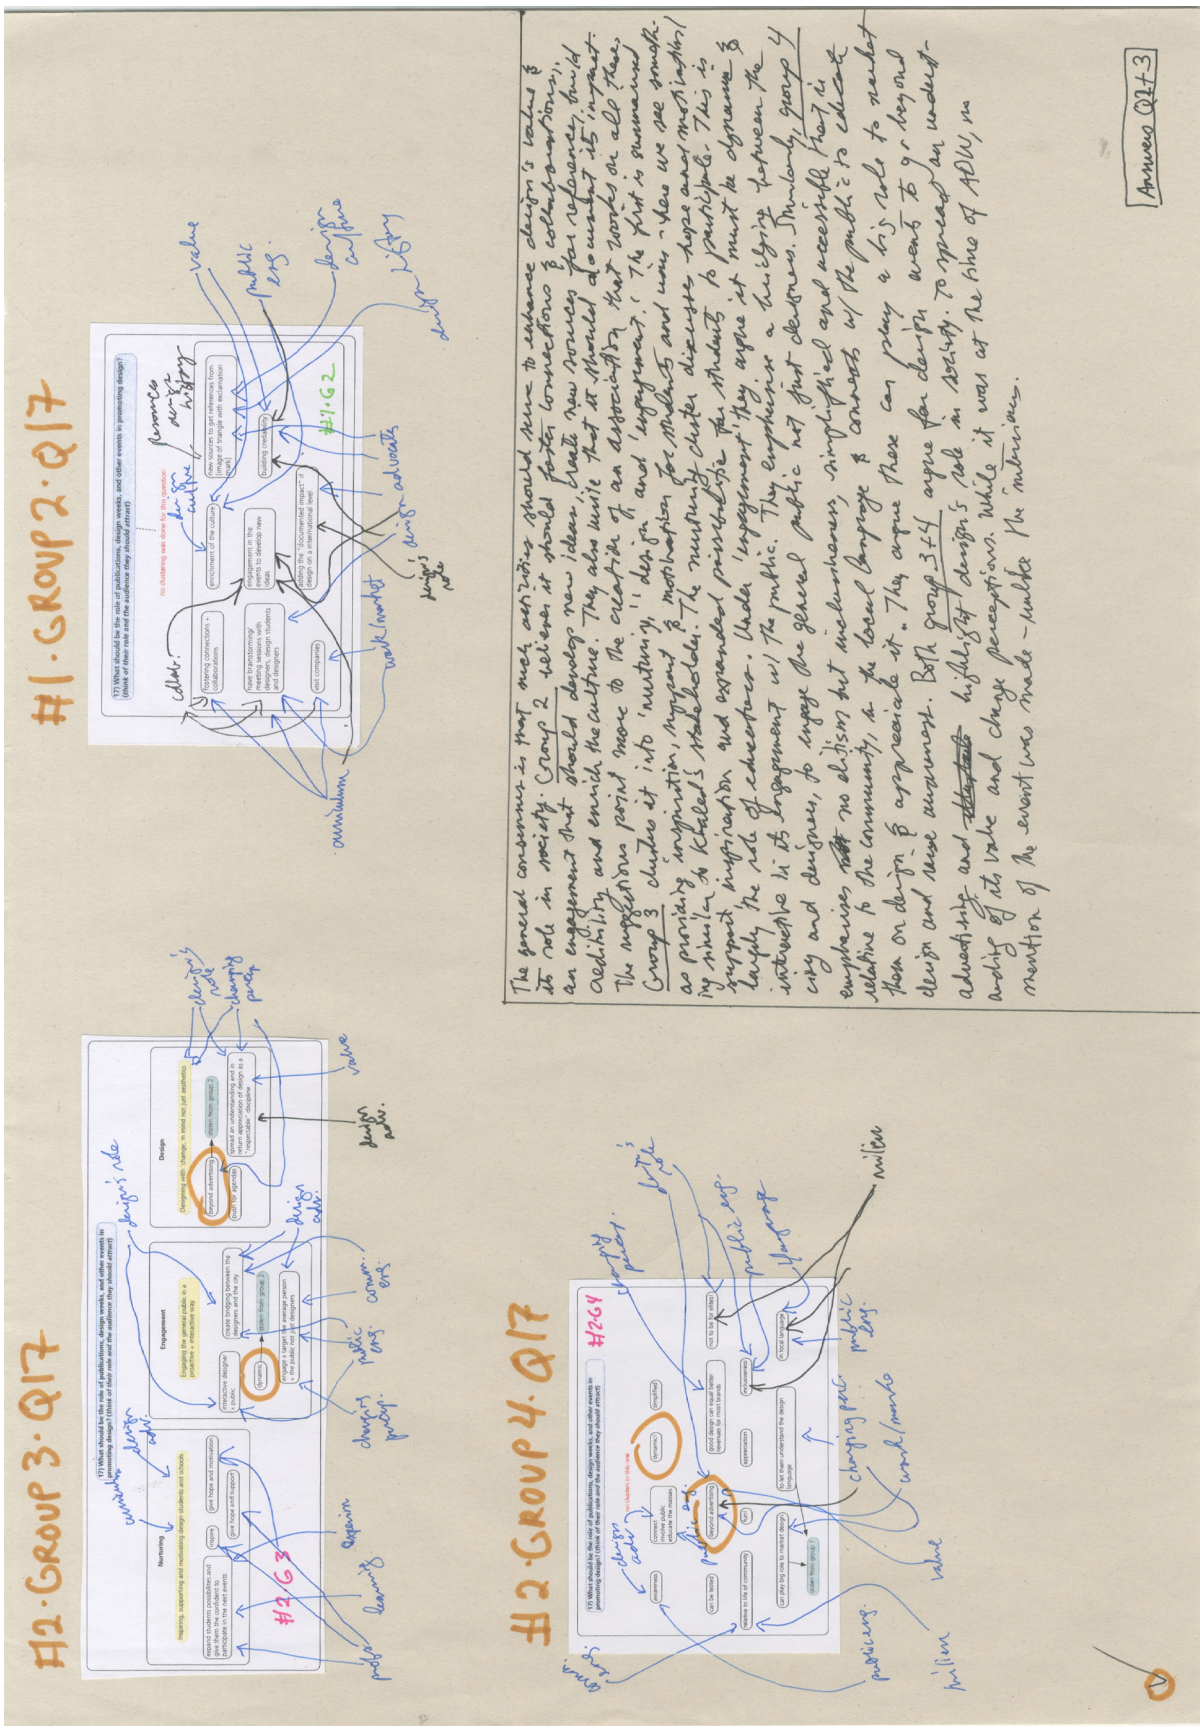 #2·GROUP 3·Q17
17) What should be the role of publications, design weeks, and other events in
promoting design? (think of their role and the audience they should attract)
curriculum
design
adv.
design's role
Nurturing
Inspiring, supporting and motivating design students and schools
expand students possibilities and
give them the confident to
participate in the next events
inspire
give hope and motivation
give hope and support
#2 G3
profs
learning
Engagement
Engaging the general public in a
proactive + interactive way
interactive designer
x public
create bridging between the
designers and the city
dynamic
stolen from group 2
engage x target the average person
+ the public not just designers
changing
percep.
public
eng.
comm.
eng.
design
adv.
Design
Designing with 'change' in mind not just aesthetics
beyond advertising
stolen from group 2
push for agendas
spread an understanding and in
return appreciation of design as a
"respectable" discipline
design's
role
changing
percep
value
design
adv.
#1·GROUP 2·Q17
17) What should be the role of publications, design weeks, and other events in promoting design?
(think of their role and the audience they should attract)
no clustering was done for this question
collab.
design
culture
resources
design
history
fostering connections +
collaborations
enrichment of the culture
new sources to get references from
[image of triangle with exclamation
mark]
have brainstorming/
meeting sessions with
designers, design students
and designers
engagement in the
events to develop new
ideas
building credability
visit companies
adding the "documented impact" if
design on a international level
#1·G2
value
public
eng.
design
culture
design history
curriculum
work/market
design's
role
design advocates
#2·GROUP 4·Q17
17) What should be the role of publications, design weeks, and other events in
promoting design? (think of their role and the audience they should attract)
no clusters in this one
#2·G4
design
adv.
awareness
connect
involve public
educate the masses
dynamic
simplified
can be tested
public eng.
beyond advertising
good design can equal better
revenues for most brands
not to be for elites!
relative to life of community
fun!
appreciation
inclusiveness
can play big role to market design
to let them understand the design
language
in local language
stolen from group 1
changing
percep.
public eng.
language
milieu
public
eng.
changing perc.
work/market
value
public eng.
milieu
The general consensus is that such activities should serve to enhance design's value &
its role in society. Group 2 believes it should foster connections & collaborations,
an engagement that should develop new ideas, create new sources for reference, build
credibility and enrich the culture. They also write that it should document its impact.
The suggestions point more to the creation of an association that works on all these.
Group 3 clusters it into 'nurturing,' 'design,' and 'engagement.' The first is summarised
as providing inspiration, support & motivation for students and unis - here we see someth-
ing similar to Khaled's stakeholders. The nurturing cluster discusses hope and motivation/
support inspiration and expanded possibilities for students to participate. This is
largely the role of educators. Under 'engagement' they argue it must be dynamic &
interactive in its engagement w/ the public. They emphasise a bridging between the
city and designers, to engage the general public not just designers. Similarly, group 4
emphasises no elitism but inclusiveness, simplified and accessible that is
relative to the community, in the local language & connects w/ the public to educate
them on design & appreciate it. They argue these can play a big role to market
design and raise awareness. Both group 3+4 argue for design events to go beyond
advertising and highlight design's role in society. To spread an underst-
anding of its value and change perceptions. While it was at the time of ADW, no
mention of the event was made - unlike the interviews.
Answers Q2+3